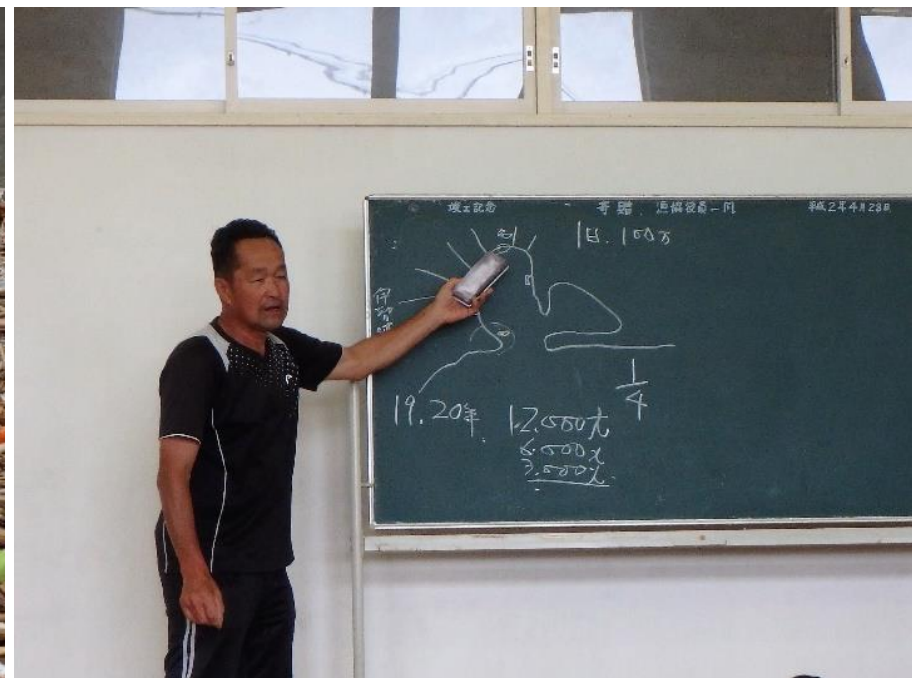 竣工記念 寄贈 漁協役員一同 平成2年4月28日
1日.100万
1
4
19.20年
12.000尤
6.000尤
3.000尤